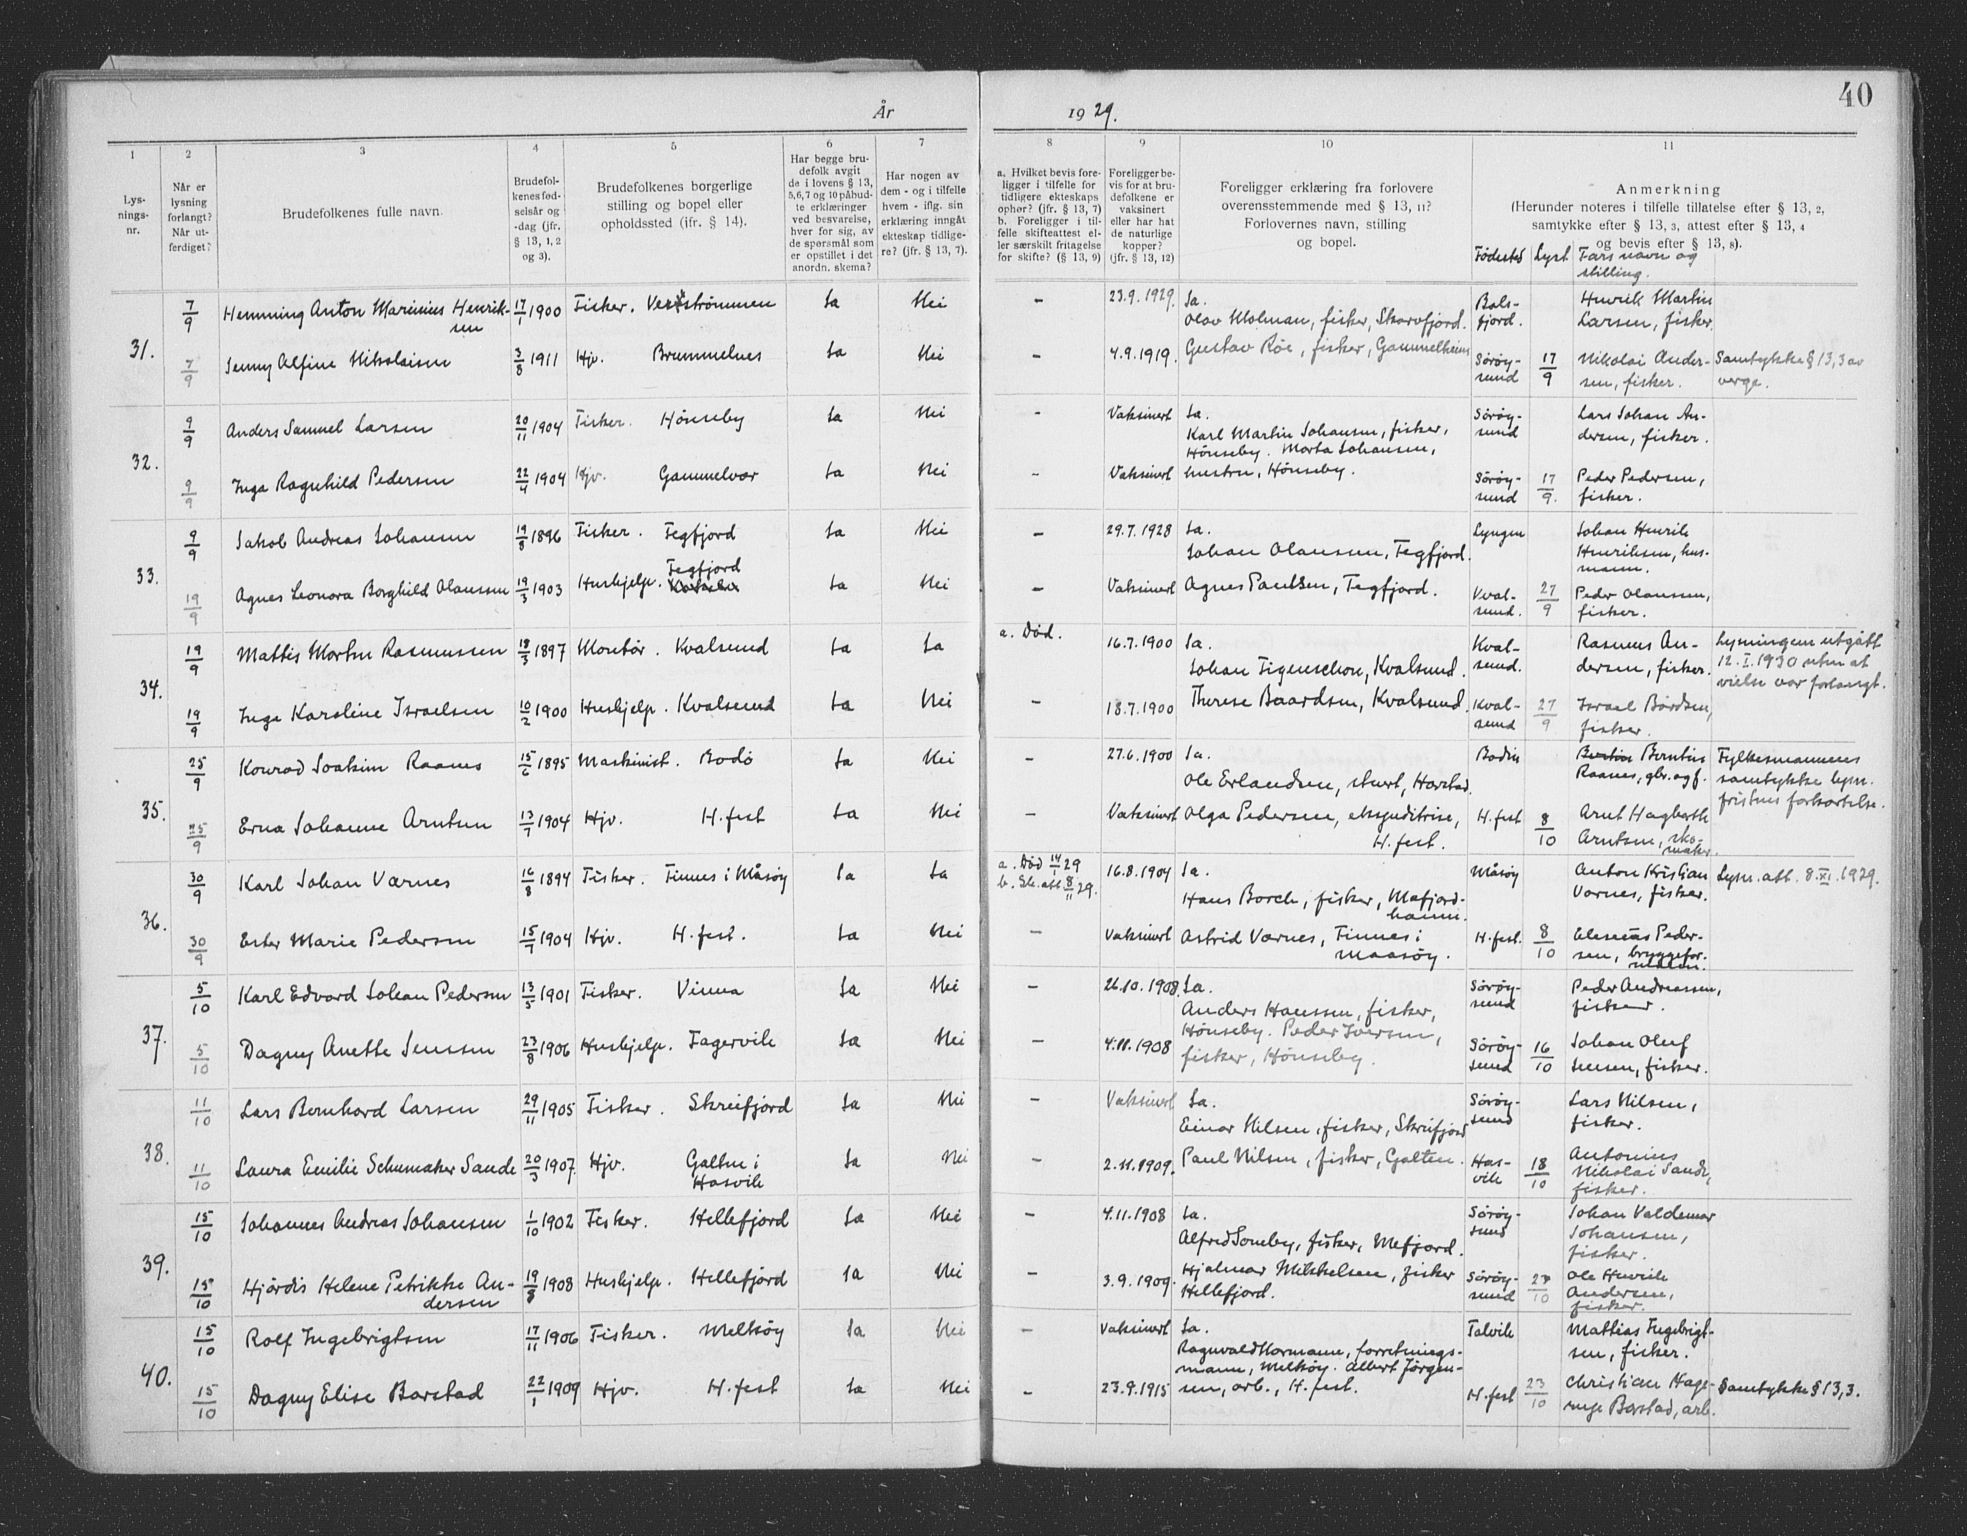 40
År 1929.
1 2 3 4 5 6 7 8 9 10 11
Lys-
nings-
nr.
Når er
lysning
forlangt?
Når ut-
ferdiget?
Brudefolkenes fulle navn.
Brudefol-
kenes fød-
selsår og
-dag (jfr.
§ 13, 1, 2
og 3).
Brudefolkenes borgerlige
stilling og bopel eller
opholdssted (jfr. § 14).
Har begge bru-
defolk avgit
de i lovens § 13,
5,6,7 og 10 påbud-
te erklæringer
ved besvarelse,
hver for sig, av
de spørsmål som
er opstillet i det
anordn. skema?
Har nogen av
dem - og i tilfelle
hvem - iflg. sin
erklæring inngått
ekteskap tidlige-
re? (jfr. § 13, 7).
a. Hvilket bevis fore-
ligger i tilfelle for
tidligere ekteskaps
ophør? (jfr. § 13, 7)
b. Foreligger i til-
felle skifteattest el-
ler særskilt fritagelse
for skifte? (§ 13, 9)
Foreligger be-
vis for at bru-
defolkene er
vaksinert
eller har hat
de naturlige
kopper?
(jfr. § 13, 12)
Foreligger erklæring fra forlovere
overensstemmende med § 13, 11?
Forlovernes navn, stilling
og bopel.
Anmerkning
(Herunder noteres i tilfelle tillatelse efter § 13, 2,
samtykke efter § 13, 3, attest efter § 13, 4
og bevis efter § 13, 8).
Fødested Lyst Fars navn og
stilling.
31.
7/9 Henning Anton Marinius Henrik-
sen 17/1 1900 Fisker. Ja Nei - 23.9.1929. Ja.
Olav Molman, fisker, Skarvfjord. Bals-
fjord. Henrik Martin
Larsen, fisker.
7/9 Jenny Alfine Nikolaisen 3/8 1911 Hjv. Brummelnes Ja Nei - 4.9.1919. Gustav Røe, fisker, Gammelheim Sørøy-
sund 17/9 Nikolai Ander-
sen, fisker. Samtykke § 13,3 av
verge.
32.
9/9 Anders Samuel Larsen 20/11 1904 Fisker. Hønseby Ja Nei - Vaksinert Ja.
Karl Martin Johansen, fisker,
Hønseby. Marta Johansen,
hustru, Hønseby. Sørøy-
sund Lars Johan An-
dersen, fisker.
9/9 Inga Ragnhild Pedersen 22/4 1904 Hjv. Gammelvær Ja Nei - Vaksinert Sørøy-
sund 17/9. Peder Pedersen,
fisker.
33.
9/9 Jakob Andreas Johansen 19/8 1896 Fisker. Fegfjord Ja Nei - 29.7.1928 Ja.
Johan Olausen, Fegfjord. Lyngen Johan Henrik
Henriksen, hus-
mann.
19/9 Agnes Leonora Borghild Olaussen 19/3 1903 Hushjelp. Fegfjord Ja Nei - Vaksinert Agnes Paulsen, Fegfjord. Kval-
sund. 27/9 Peder Olaussen,
fisker.
34.
19/9 Mattis Morten Rasmussen 18/3 1897 Montør. Kvalsund Ja Ja a. Død. 16.7.1900 Ja.
Johan Figenschou, Kvalsund. Kval-
sund. Rasmus An-
dersen, fisker. Lysningen utgått
12.I.1930 uten at
vielse var forlangt.
19/9 Inga Karoline Israelsen 10/2 1900 Hushjelp. Kvalsund Ja Nei - 18.7.1900 Therese Baardsen, Kvalsund. Kval-
sund 27/9 Israel Bårdsen,
fisker.
35.
25/9 Konrad Joakim Raanes 15/6 1895 Maskinist. Bodø Ja Nei - 27.6.1900 Ja.
Ole Erlandsen, stuert, Harstad. Bodin Berntin Berntin
Raanes, gbr. og f. Fylkesmannens
samtykke lysn.
fristens forkortelse.
25/9 Erna Johanne Arntsen 13/7 1904 Hjv. H.fest Ja Nei - Vaksinert Olga Pedersen, ekspeditrise,
H.fest. H.fest 8/10 Arnt Hagbarth
Arntsen, sko-
maker.
36.
30/9 Karl Johan Værnes 16/8 1894 Fisker. Finnes i Måsøy Ja Ja a. Død 14/1 29
b. Sk.att. 8/11 29. 16.8.1904 Ja.
Hans Borch, fisker, Mafjord-
hamn. Måsøy Anton Kristian
Værnes, fisker. Lysn.att. 8.XI.1929.
30/9 Ester Marie Pedersen 15/7 1904 Hjv. H.fest. Ja Nei - Vaksinert Astrid Værnes, Finnes i
Maasøy. H.fest. 8/10 Eleseus Peder-
sen, bryggefor-
valter.
37.
5/10 Karl Edvard Johan Pedersen 13/5 1901 Fisker. Vinna Ja Nei - 26.10.1908. Ja.
Anders Hanssen, fisker,
Hønseby. Peder Iversen,
fisker, Hønseby. Sørøy-
sund Peder Andreassen,
fisker.
5/10 Dagny Anette Jenssen 23/8 1906 Hushjelp. Fagervik Ja Nei - 4.11.1908 Sørøy-
sund 16/10 Johan Oluf
Jensen, fisker.
38.
11/10 Lars Bernhard Larsen 29/11 1905 Fisker. Skreifjord Ja Nei - Vaksinert Ja.
Einar Nilsen, fisker, Skreifjord Sørøy-
sund Lars Nilsen,
fisker.
11/10 Laura Emilie Schumaker Sande 20/3 1907 Hjv. Galten i
Hasvik Ja Nei - 2.11.1909. Paul Nilsen, fisker, Galten. Has-
vik 18/10 Antonius
Nikolai Sande,
fisker.
39.
15/10 Johannes Andreas Johansen 1/10 1902 Fisker. Hellefjord Ja Nei - 4.11.1908 Ja.
Alfred Soneby, fisker, Mefjord. Sørøy-
sund Johan Valdemar
Johansen,
fisker.
15/10 Hjørdis Helene Petrikke An-
dersen 19/8 1908 Hushjelp. Hellefjord Ja Nei - 3.9.1909. Hjalmar Mikkelsen, fisker
Hellefjord. Sørøy-
sund 23/10 Ole Henrik
Andersen,
fisker.
40.
15/10 Rolf Ingebrigtsen 17/11 1906 Fisker. Melkøy Ja Nei - Vaksinert Ja.
Ragnvald Normann, forretnings-
mann, Melkøy. Albert Jørgen-
sen, arb., H.fest. Talvik Mattias Ingebrigt-
sen, fisker.
15/10 Dagny Elise Barstad 22/1 1909 Hjv. H.fest Ja Nei - 23.9.1915 H.fest 23/10 Christian Hage-
rup Barstad, arb. Samtykke § 13,3.